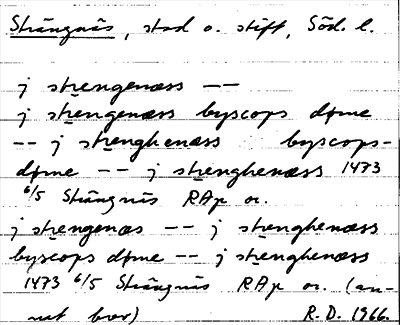 Strängnäs, stad o. stift, Söd. l.
j strengenæss --
j strengenæss byscops døme
-- j strenghenæss byscops-
døme -- j strenghenæss 1473
6/5 Strängnäs RAp or.
j strengenæs -- j strenghenæss
byscops døme -- j strenghenæss
1473 6/5 Strängnäs RAp or. (an-
nat brev) R.D. 1966.